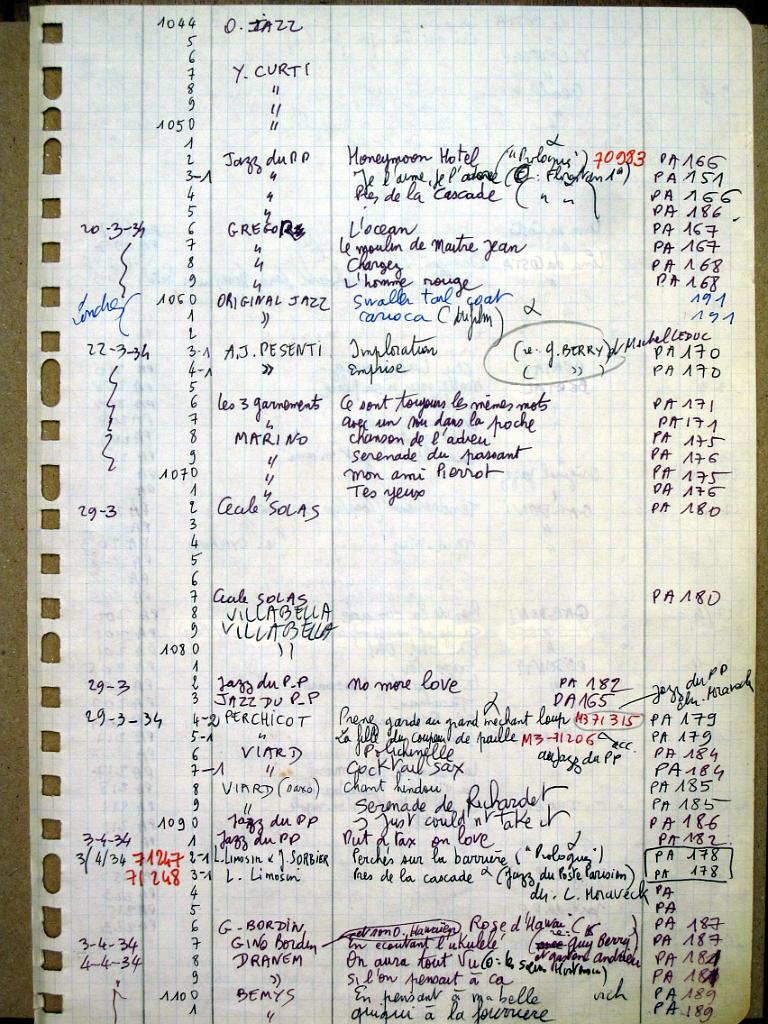 1044 O. JAZZ
5
6
7 Y. CURTI
8 "
9 "
1050 "
1
2 Jazz du PP Honeymoon Hotel ("Prologue") 70983 PA 166
3-1 " Je l'aime, je l'adore PA 151
4 " Près de la Cascade ( " " ) PA 166
5 " PA 186
20-3-34 6 GREGOR L'ocean PA 167
7 " Le moulin de Maitre Jean PA 167
8 " Chargez PA 168
9 " L'homme rouge PA 168
Londres 1060 ORIGINAL JAZZ Smaller tail coat 191
1 " carioca 191
2
22-3-34 3-1 A.J. PESENTI Imploration (re. g. BERRY) Michel LEDUC PA 170
4-1 " Emprise ( " ) PA 170
5
6 Les 3 garnements Ce sont toujours les mêmes mots PA 171
7 " avec un sou dans la poche PA 171
8 MARINO chanson de l'adieu PA 175
9 " serenade du passant PA 176
1070 " mon ami Pierrot PA 175
1 " Tes yeux PA 176
29-3 2 Cecile SOLAS PA 180
3
4
5
6
7 Cecile SOLAS PA 180
8 VILLABELLA
9 VILLABELLA
1080 "
1
29-3 2 Jazz du P-P no more love PA 182
3 JAZZ DU P-P PA 165 Jazz du PP
29-3-34 4-2 PERCHICOT Prene garde au grand méchant loup M3 71315 PA 179
5-1 " La fille du coupeur de paille M3-71206 acc. PA 179
6 VIARD Polichinelle au Jazz du PP PA 184
7-1 " Cocktail Sax PA 184
8 VIARD (saxo) chant hindou PA 185
9 " Serenade de Richardet PA 185
1090 Jazz du PP I Just couldn't take it PA 186
3-4-34 1 Jazz du PP Put a tax on love PA 182
3/4/34 71247 2-1 L. Limosin & J. SORBIER Perchés sur la barrière ("Prologue") PA 178
71248 3-1 L. Limosin Pres de la cascade (Jazz du Poste Parisien) PA 178
4 dir. L. Moraveck PA
5 PA
6 G. BORDIN, et son O. Hawaien Rose d'Hawai PA 187
3-4-34 7 GINO Bordin En ecoutant l'ukulélé Guy Berry) PA 187
4-4-34 8 DRANEM On aura tout Vu PA 181
9 " si l'on pensait à ca PA 181
1100 BEMYS En pensant à ma belle PA 189
1 " quiqui à la fourrière PA 189